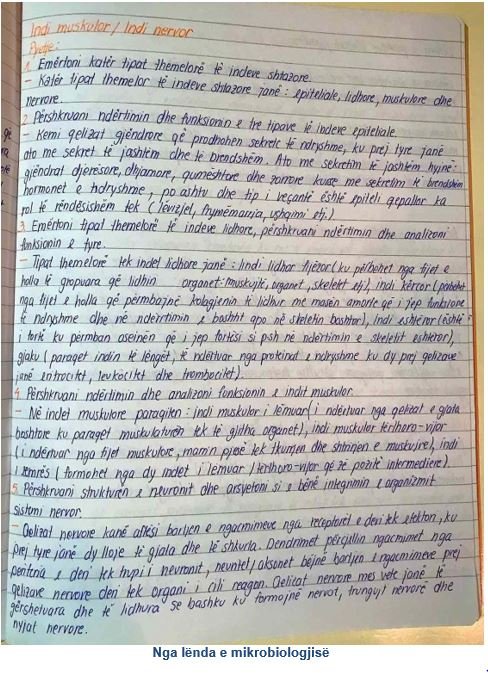 Indi muskulor / Indi nervor
Pyetje:
1. Emërtoni katër tipat themelorë të indeve shtazore.
– Katër tipat themelor të indeve shtazore janë: epiteliale, lidhore, muskulore dhe
nervore.
2. Përshkruani ndërtimin dhe funksionin e tre tipave të indeve epiteliale.
– Kemi qelizat gjëndrore që prodhohen sekrete të ndryshme, ku prej tyre janë
ato me sekret të jashtëm dhe të brendshëm. Ato me sekretim të jashtëm hyjnë:
gjëndrat djersore, dhjamore, qumështore dhe zorrore kurse me sekretim të brendshëm
hormonet e ndryshme, po ashtu dhe tip i veçantë është epiteli qepallor ka
rol të rëndësishëm tek (lëvizjet, frymëmarrja, ushqimi etj.)
3. Emërtoni tipat themelorë të indeve lidhore, përshkruani ndërtimin dhe analizoni
funksionin e tyre.
– Tipat themelorë tek indet lidhore janë: Indi lidhor fijëzor (ku përbëhet nga fijet e
holla të grupuara që lidhin organet: muskujt, organet, skeletet etj), indi kërcor (përbëhet
nga fijet e holla që përmbajnë kolagjenin të lidhur me masën amorfe që i jep funksione
të ndryshme dhe në ndërtimin e bashtit apo në skeletin bashtor), Indi eshtëror (është
i fortë ku përmban aseinën që i jep fortësi si psh në ndërtimin e skeletit eshtëror),
gjaku (paraget indin të lëngët, të ndërtuar nga proteina e ndryshme ku dy prej qelizave
janë entrocitet, leukocitet dhe trombocitet).
4. Përshkruani ndërtimin dhe analizoni funksionin e indit muskulor.
– Në indet muskulore paraqiten: indi muskulor i lëmuar (i ndërtuar nga qelizat e gjata
bashtore ku paraget muskulaturën tek të gjitha organet), indi muskulor tërthoro-vijor
(i ndërtuar nga fijet muskulore, marrin pjesë tek tkurrjen dhe shtrirjen e muskujve), indi
i zemrës (formohet nga dy indet i lëmuar / tërthoro-vijor që zë pozitë intermediere).
5. Përshkruani strukturën e neuronit dhe arsyetoni si e bënë integrimin e organizmit
sistemi nervor.
– Qelizat nervore kanë aftësi bartjen e ngacmimeve nga receptorët e deri tek efektori, ku
prej tyre janë dy lloje të gjata dhe të shkurta. Dendrimet përcjellin ngacmimet nga
periferia e deri tek trupi i neuronit, neuritet/aksonet bëjnë bartjen e ngacmimeve prej
qelizave nervore deri tek organi i cili reagon. Qelizat nervore mes vete janë të
gërshetuara dhe të lidhura se bashku ku formojnë nervat, trungjet nervorë dhe
nyjat nervore.
Nga lënda e mikrobiologjisë